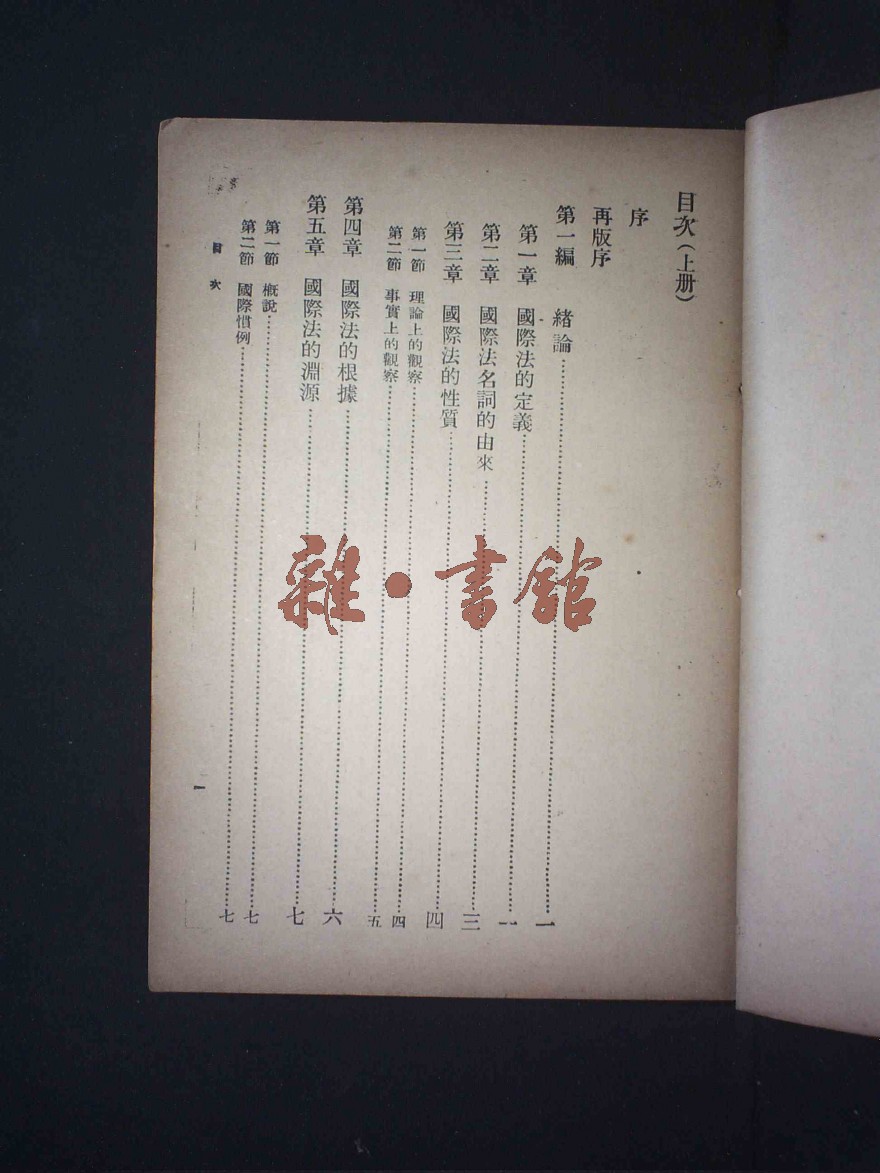 目次（上册）
序
再版序
第一編　緒論……一
第一章　國際法的定義……一
第二章　國際法名詞的由來……三
第三章　國際法的性質……四
第一節　理論上的觀察……四
第二節　事實上的觀察……五
第四章　國際法的根據……六
第五章　國際法的淵源……七
第一節　概說……七
第二節　國際慣例……七
目次
一
雜·書館